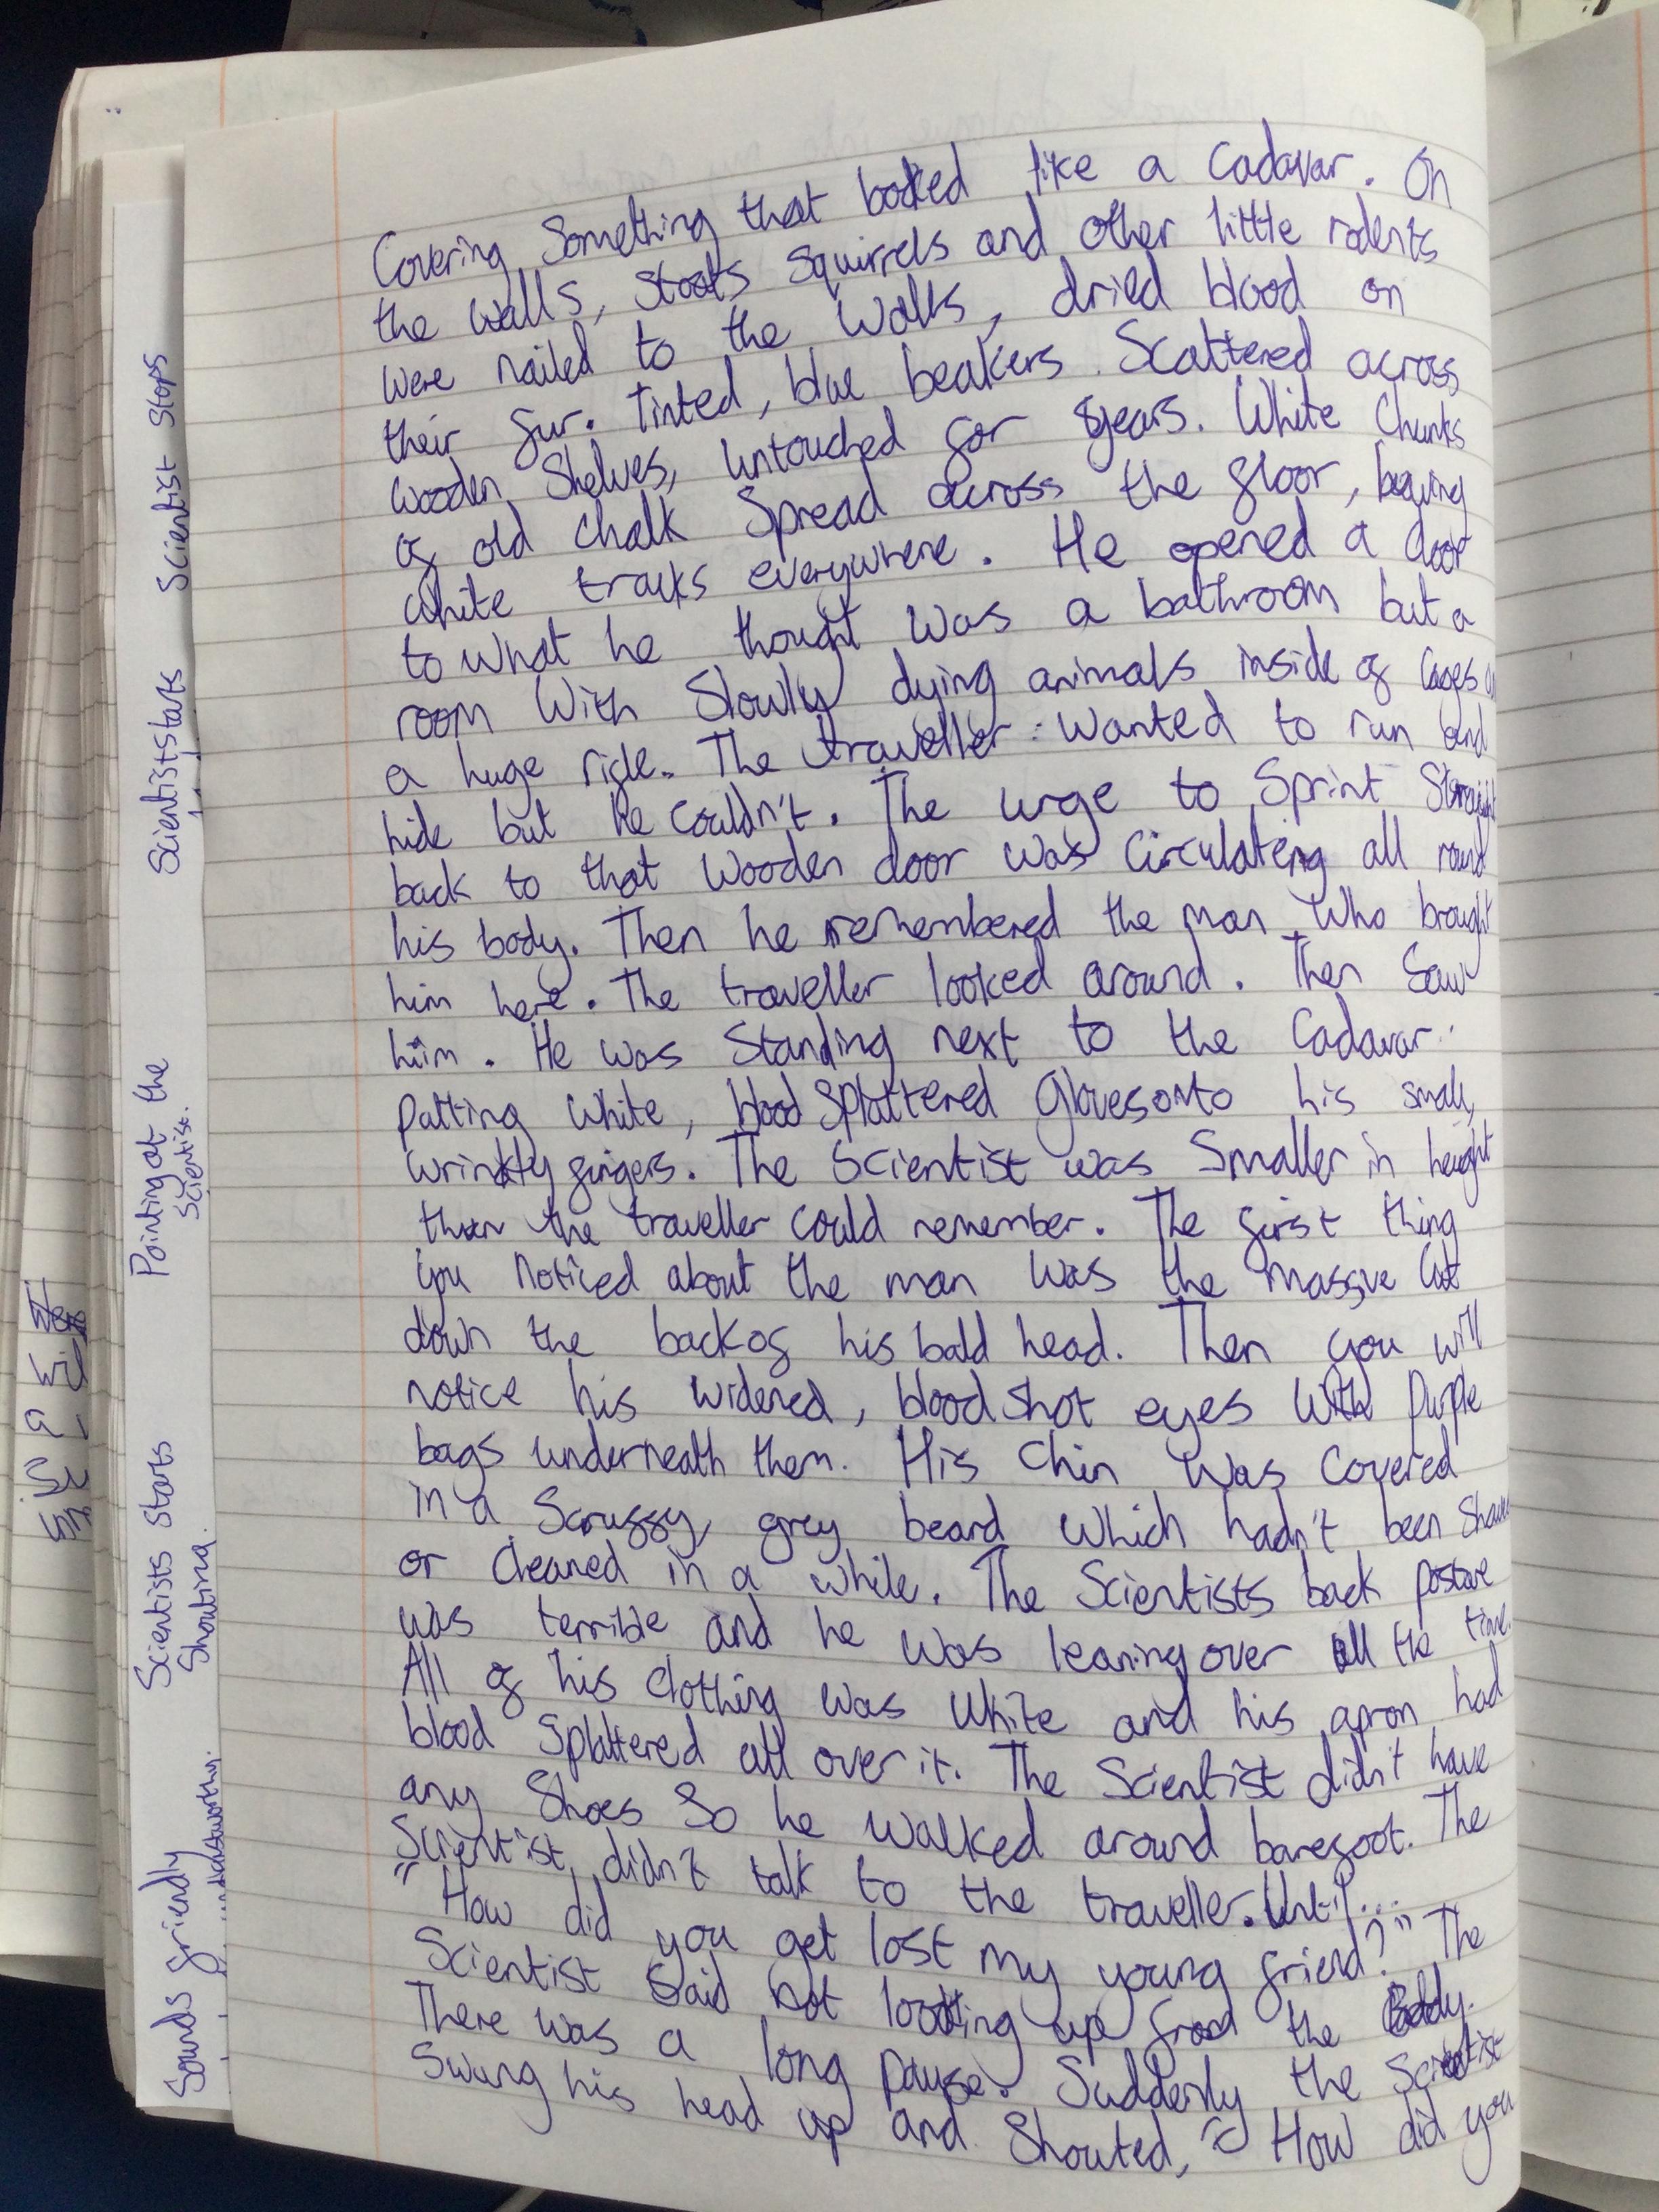 Covering Something that looked like a Cadavar. On
the walls, stoats squirrels and other little rodents
were nailed to the walls, dried blood on
their fur. Tinted, blue beakers Scattered across
wooden Shelves, untouched for years. White Chunks
of old chalk Spread across the floor, leaving
white tracks everywhere. He opened a door
to what he thought was a bathroom but a
room With Slowly dying animals inside of Cages
a huge rifle. The traveller wanted to run and
hide but he couldn't. The urge to Sprint Straight
back to that Wooden door was Circulating all round
his body. Then he remembered the man Who brought
him here. The traveller looked around. Then Saw
him. He was Standing next to the Cadavar
Putting White, blood Splattered Gloves onto his small,
wrinkly fingers. The Scientist was Smaller in height
than the traveller could remember. The first thing
you noticed about the man was the massive Cut
down the back of his bald head. Then you will
notice his widened, blood shot eyes With Purple
bags underneath them. His Chin Was Covered
in a Scruffy, grey beard which hadn't been Shaven
or Cleaned in a while. The Scientists back posture
was terrible and he was leaning over all the time.
All of his clothing was White and his apron had
blood Splattered all over it. The Scientist didn't have
any Shoes So he walked around barefoot. The
Scientist didn't talk to the traveller. Until...
"How did you get lost my young friend?" The
Scientist Said not looking up from the Body.
There was a long pause. Suddenly the Scientist
Swung his head up and Shouted, "How did you
Scientist Stops
Scientist starts
Pointing at the
Scientist.
Scientists Starts
Shouting.
Sounds friendly